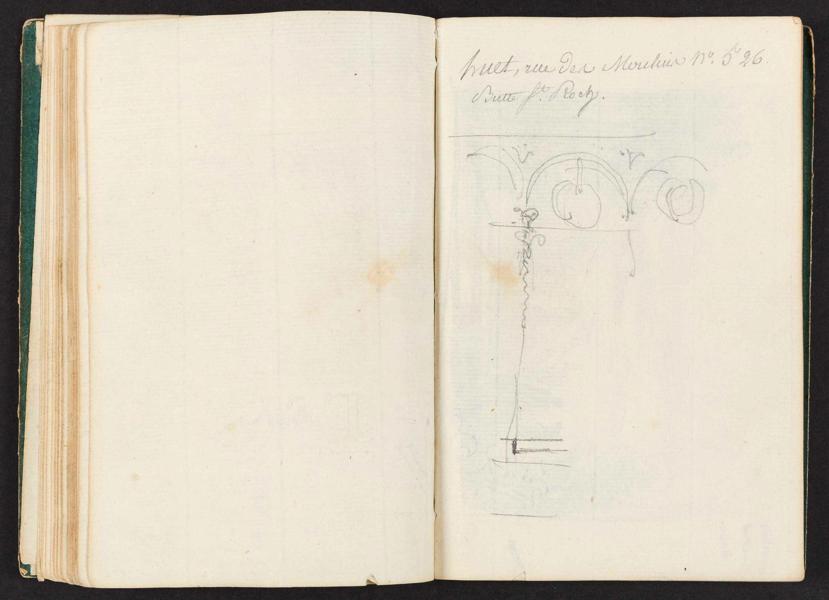 huet, rue des Moulins No. 26
Butte St. Roch.